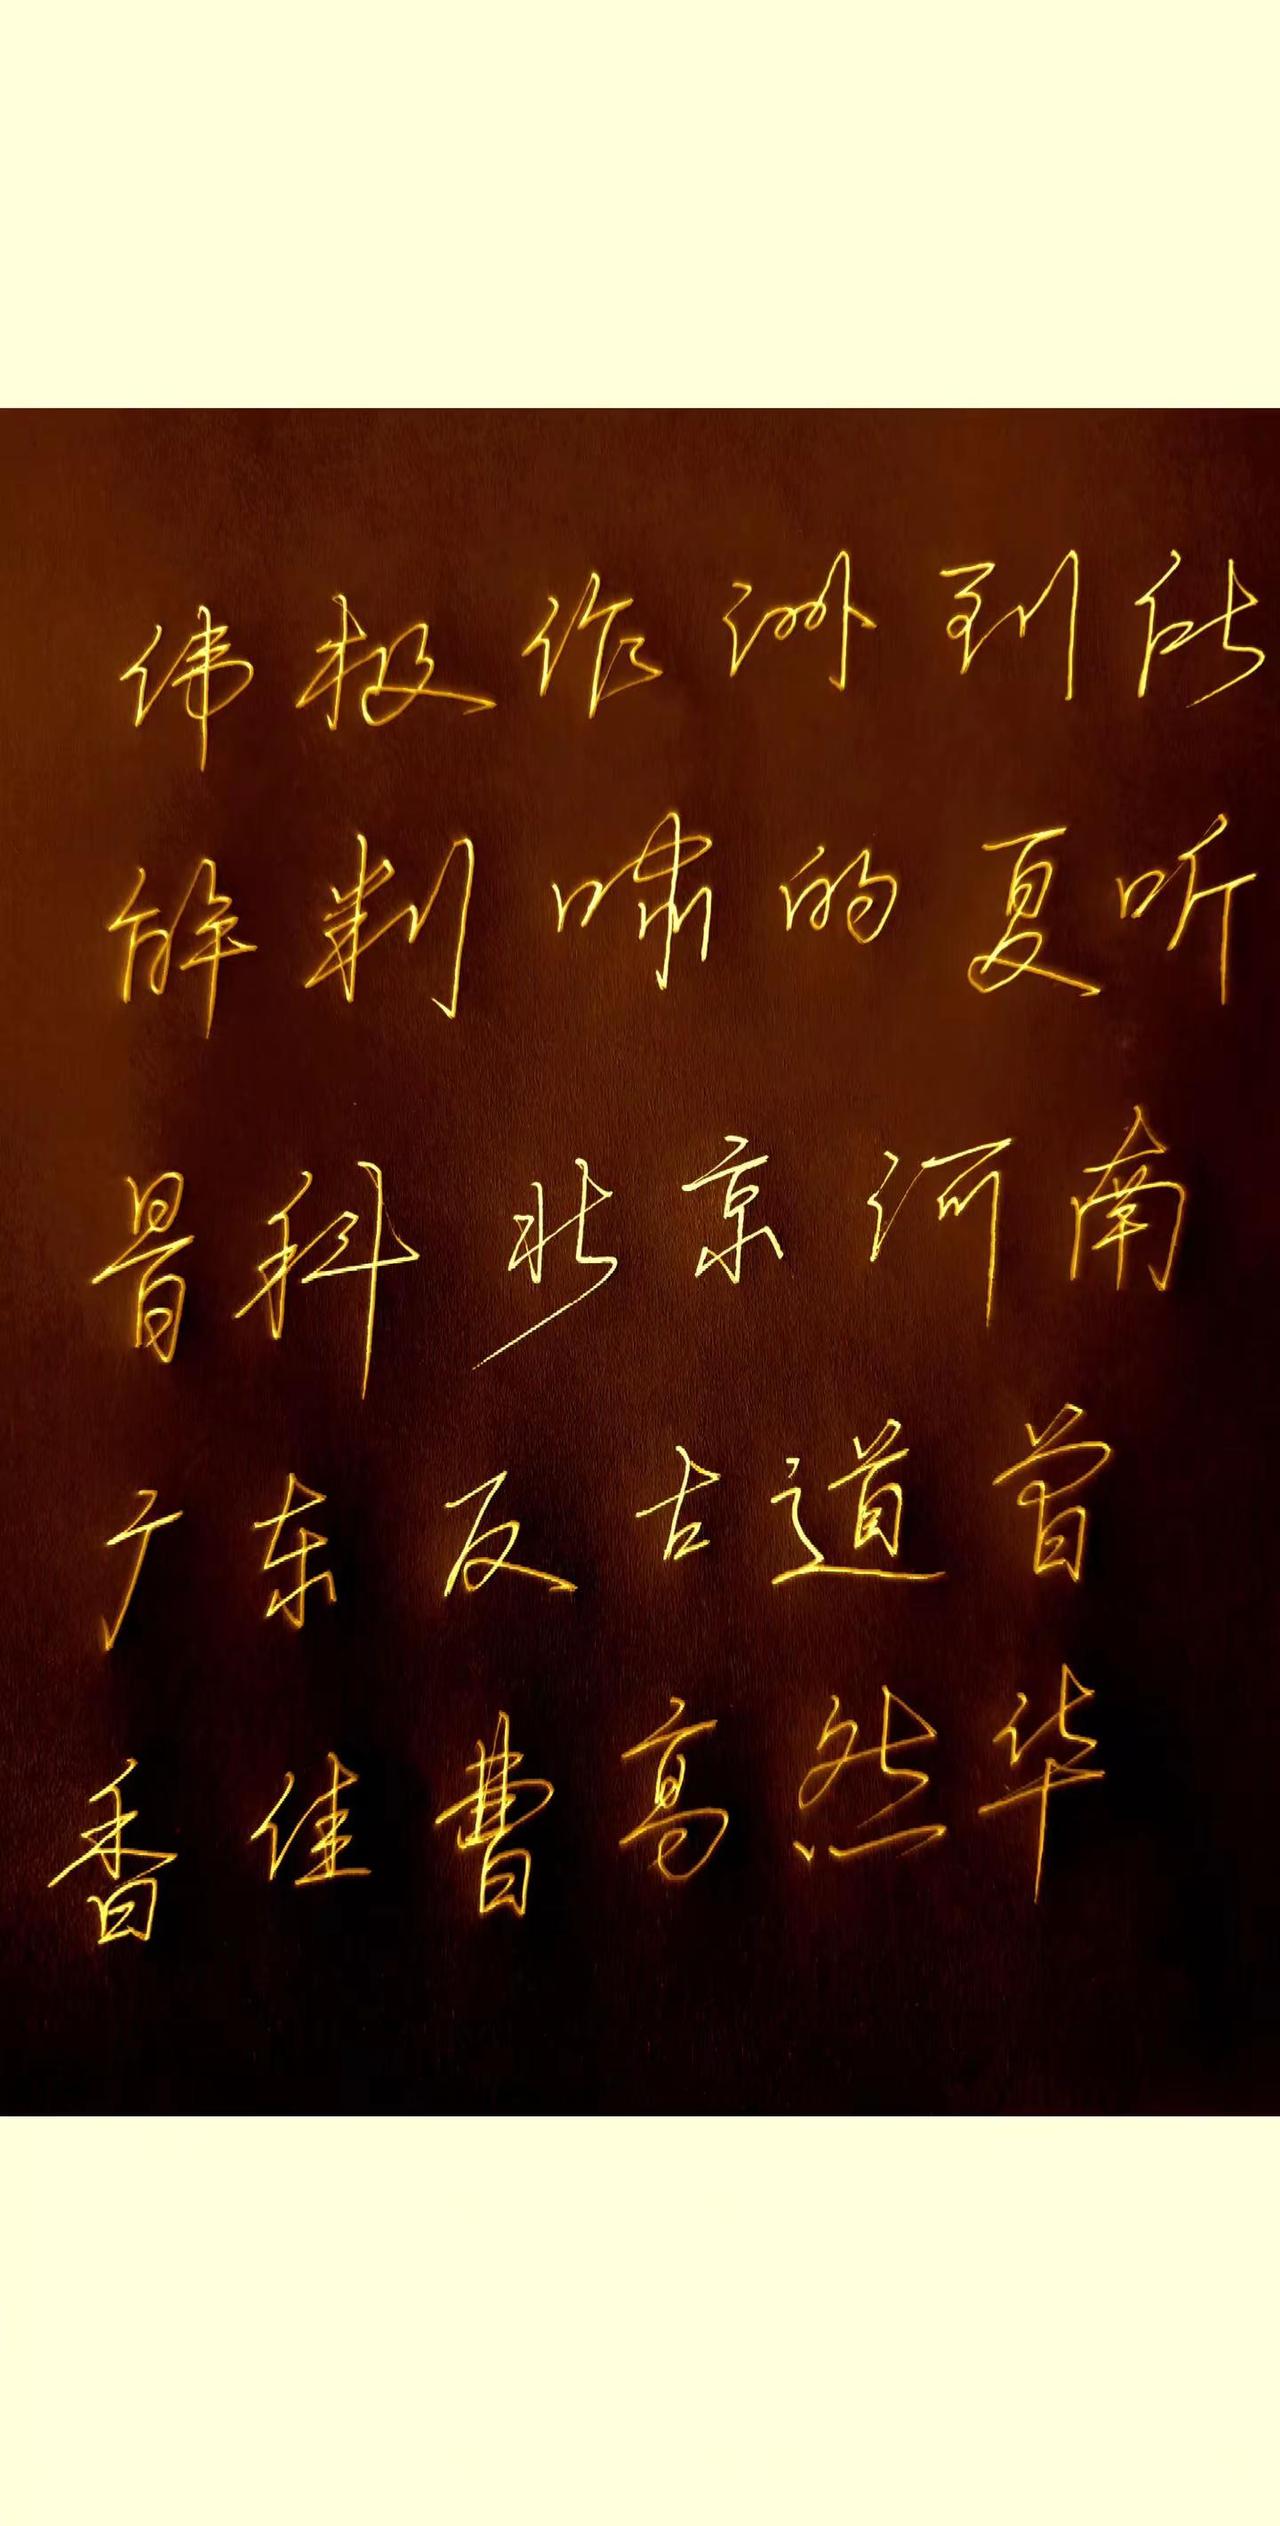 伟极作洲到化
解判啸的夏听
景科北京河南
广东反古道曾
香佳曹高然华